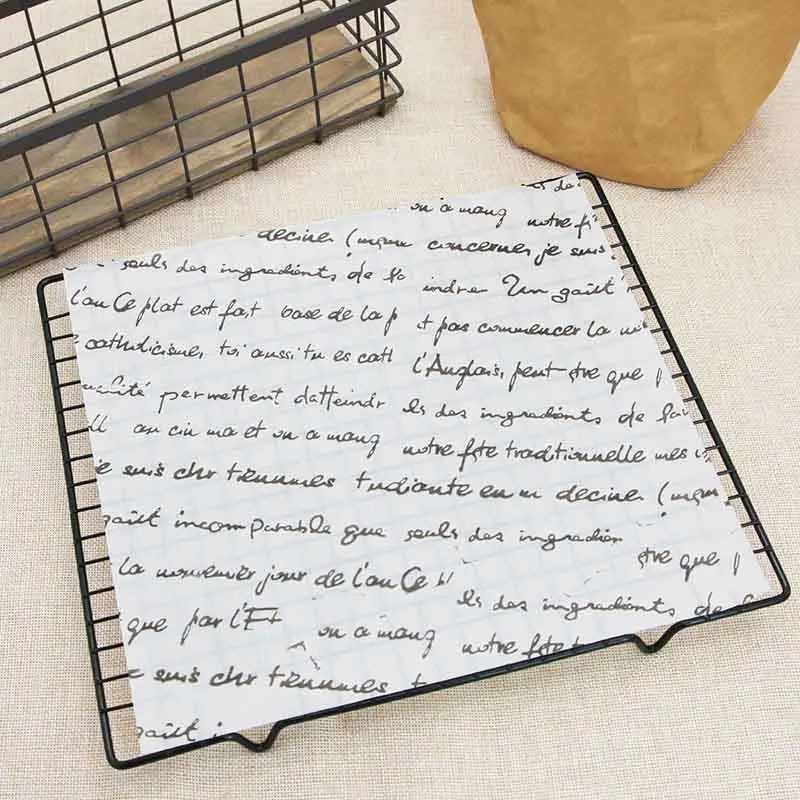 on a mang notre
decine (
concerner je suis
seuls des ingrédients de
indrer Un goût
l'an Ce plat est fait base de la p
t pas commencer la
catholicisme, toi aussi tu es cath
l'Anglais, peut-être que
ualité permettent datteindr
els des ingrédients de
au cin ma et on a mang notre fête traditionnelle mes
je suis chr tiennes tudiante en m decine (
goût incomparable que seuls des ingrédien
être que
la jour de l'an Ce
els des ingrédients de
que par l'Et
on a mang notre fête
je suis chr tiennes t
goût